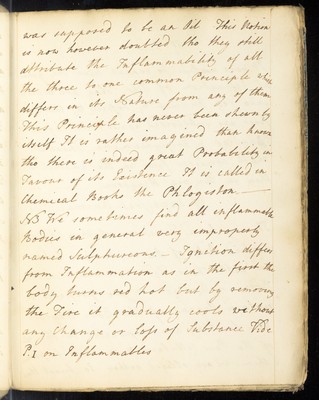 was supposed to be an Oil This Notion
is now however doubted tho they still
attribute the Inflammability of all
the three to one common Principle wh
differs in its Nature from any of them
This Principle has never been shewn by
itself It is rather imagined than known
tho there is indeed great Probability in
Favour of its Existence It is called in
Chemical Books the Phlogiston
NB We sometimes find all inflammable
Bodies in general very improperly
named Sulphureous. — Ignition differs
from Inflammation as in the first the
body burns red hot but by removing
the Fire it gradually cools without
any Change or loss of Substance Vide
P. 1 on Inflammables